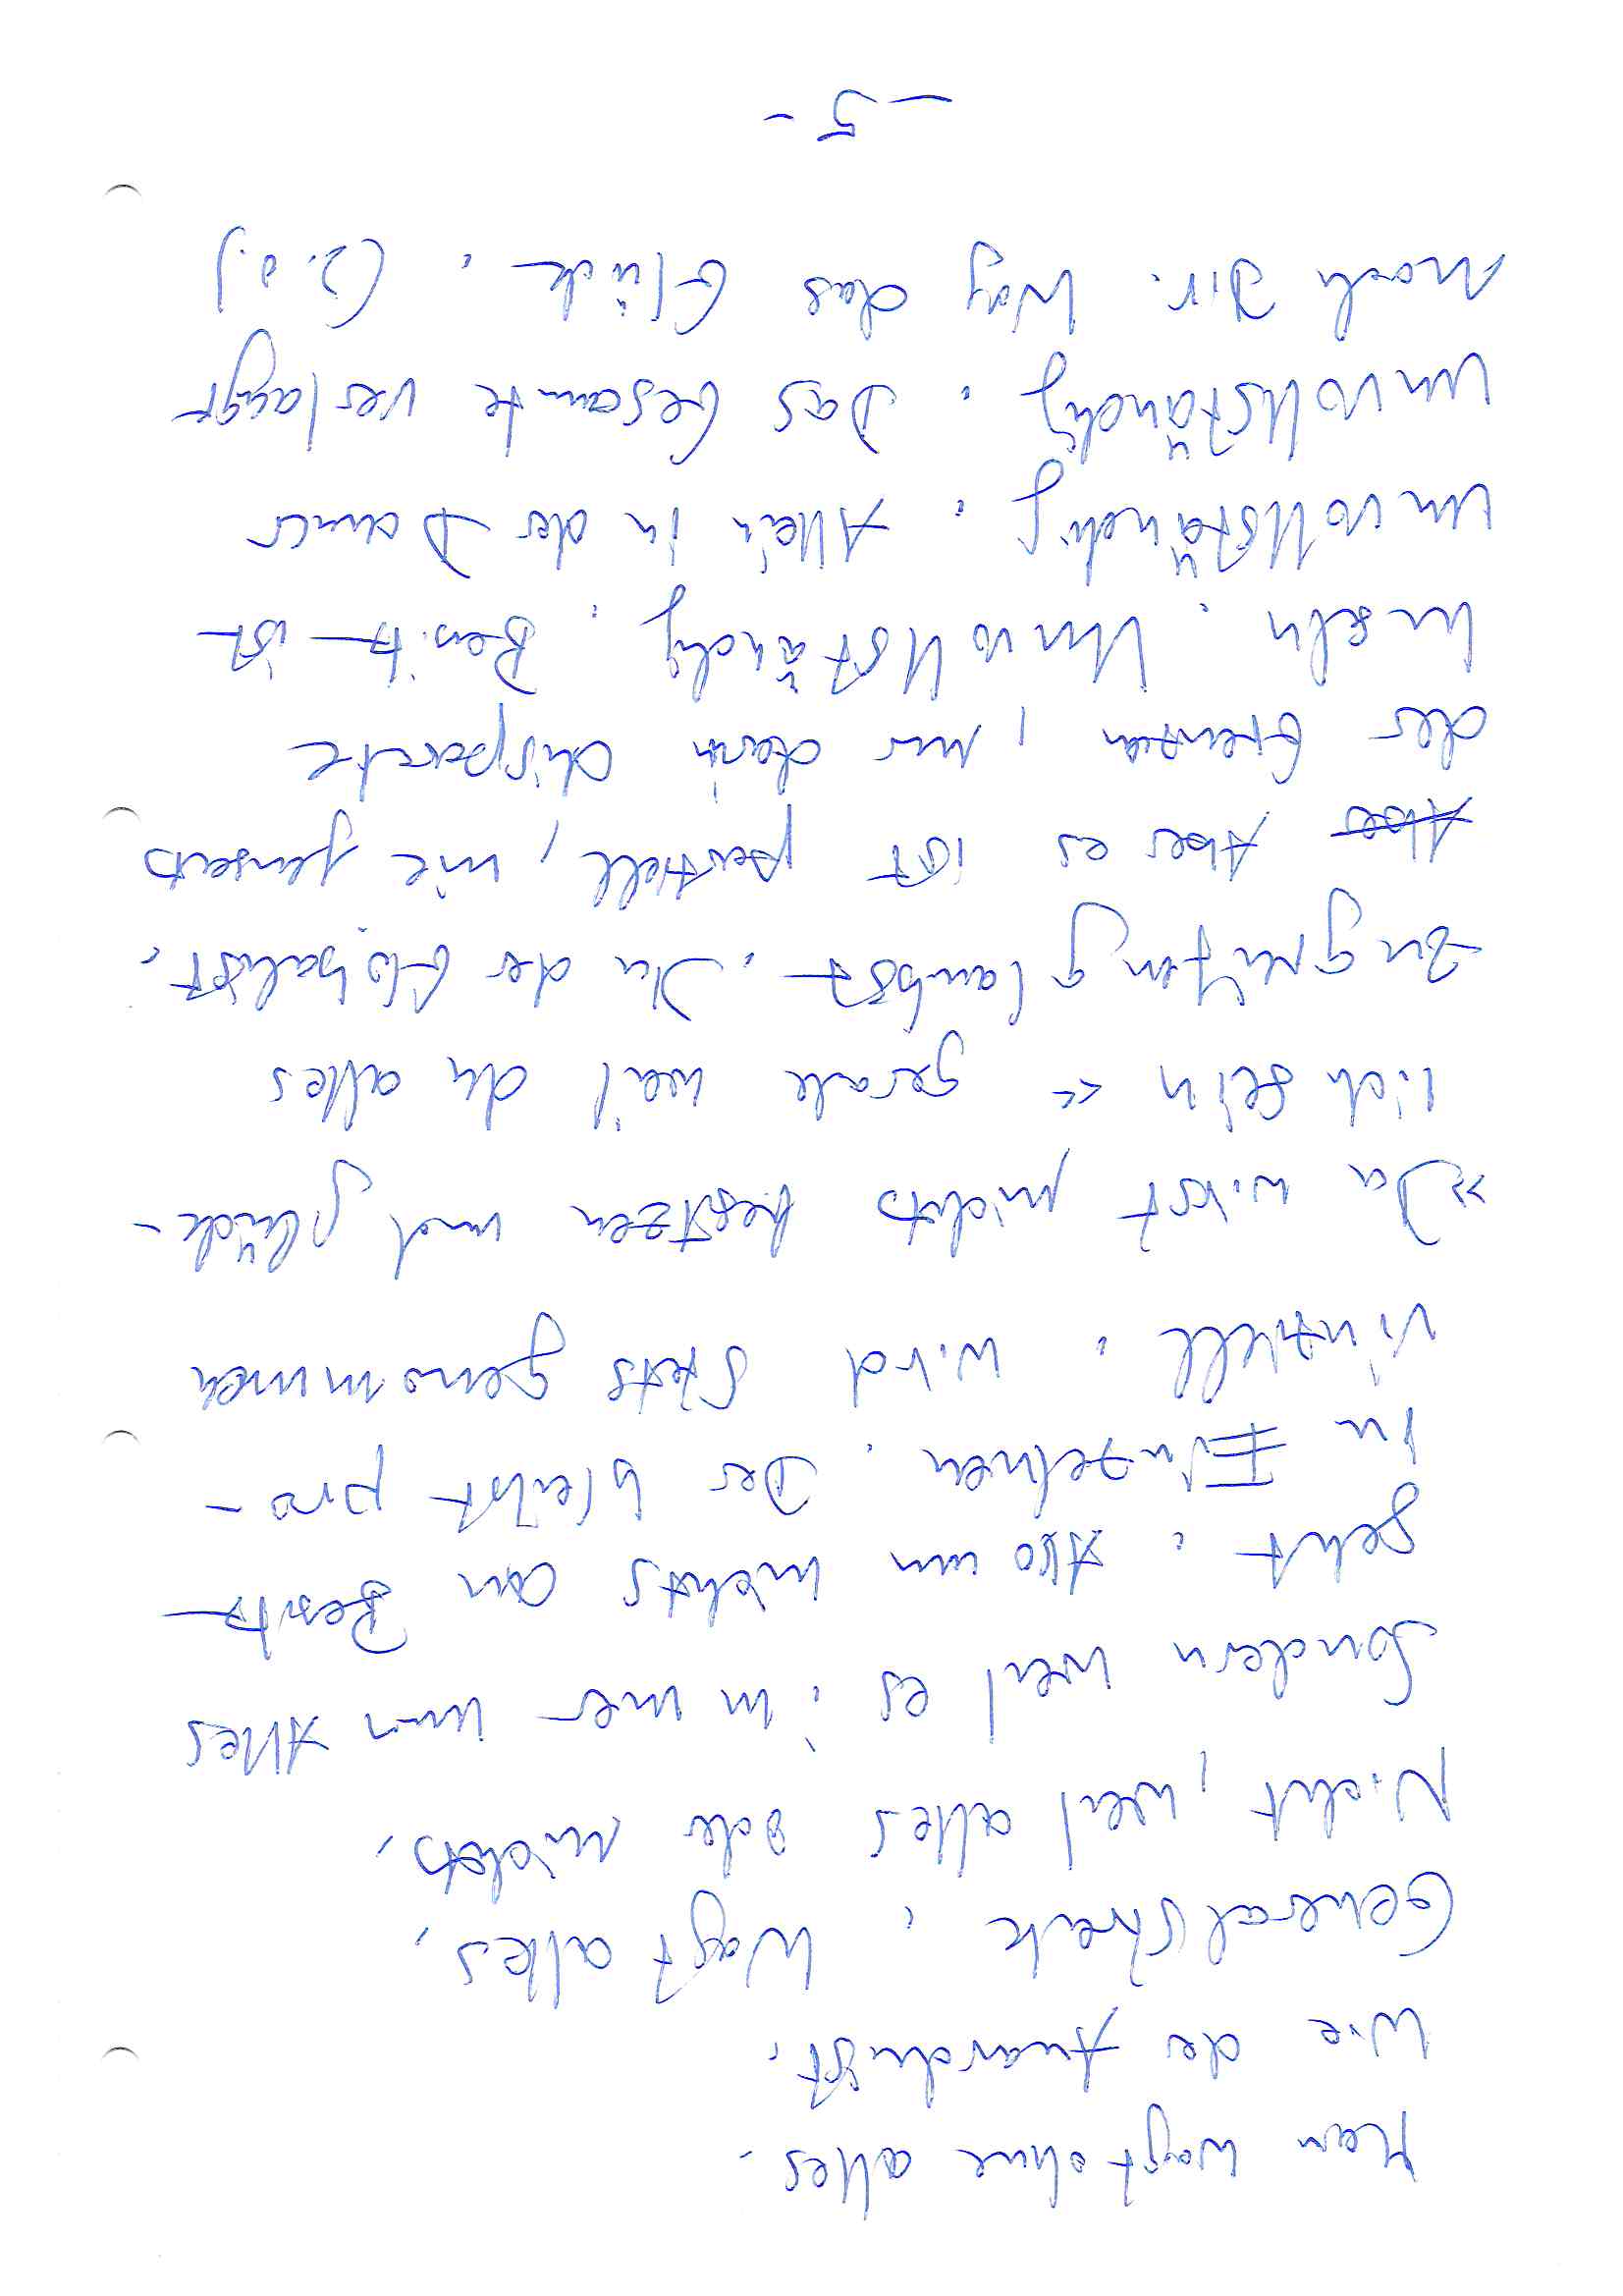 Man wagt ohne alles.
Wie der Anarchist.
Generalstreik: Wagt alles.
Nicht, weil alles oder nichts.
Sondern weil es immer um Alles
geht: Also um nichts an Besitz
im Einzelnen. Der bleibt pro-
vinziell: wird stets genommen
»Du wirst nichts besitzen und glück-
lich sein« gerade weil du alles
zu glaubst. Du der Globalist.
Aber Aber es ist partiell, nie jenseits
der Grenzen, nur darin disparate
Inseln. Unvollständig: Besitz ist
unvollständig: Allein in der Dauer
unvollständig: Das Gesamte verlangt
nach Dir. Wag das Glück. (s.o.)
- 5 -